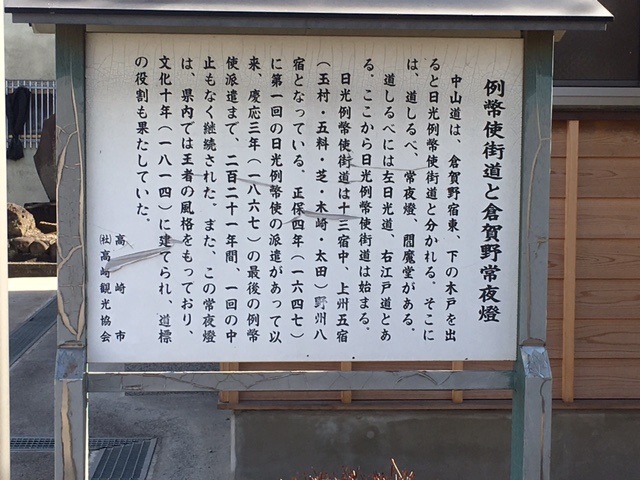 例幣使街道と倉賀野常夜燈
中山道は、倉賀野宿東、下の木戸を出
ると日光例幣使街道と分かれる。そこに
は、道しるべ、常夜燈、閻魔堂がある。
道しるべには左日光道、右江戸道とあ
る。ここから日光例幣使街道は始まる。
日光例幣使街道は十三宿中、上州五宿
（玉村・五料・芝・木崎・太田）野州八
宿となっている。正保四年（一六四七）
に第一回の日光例幣使の派遣があって以
来、慶応三年（一八六七）の最後の例幣
使派遣まで、二百二十一年間、一回の中
止もなく継続された。また、この常夜燈
は、県内では王者の風格をもっており、
文化十年（一八一四）に建てられ、道標
の役割も果たしていた。
高崎市
㈳高崎観光協会